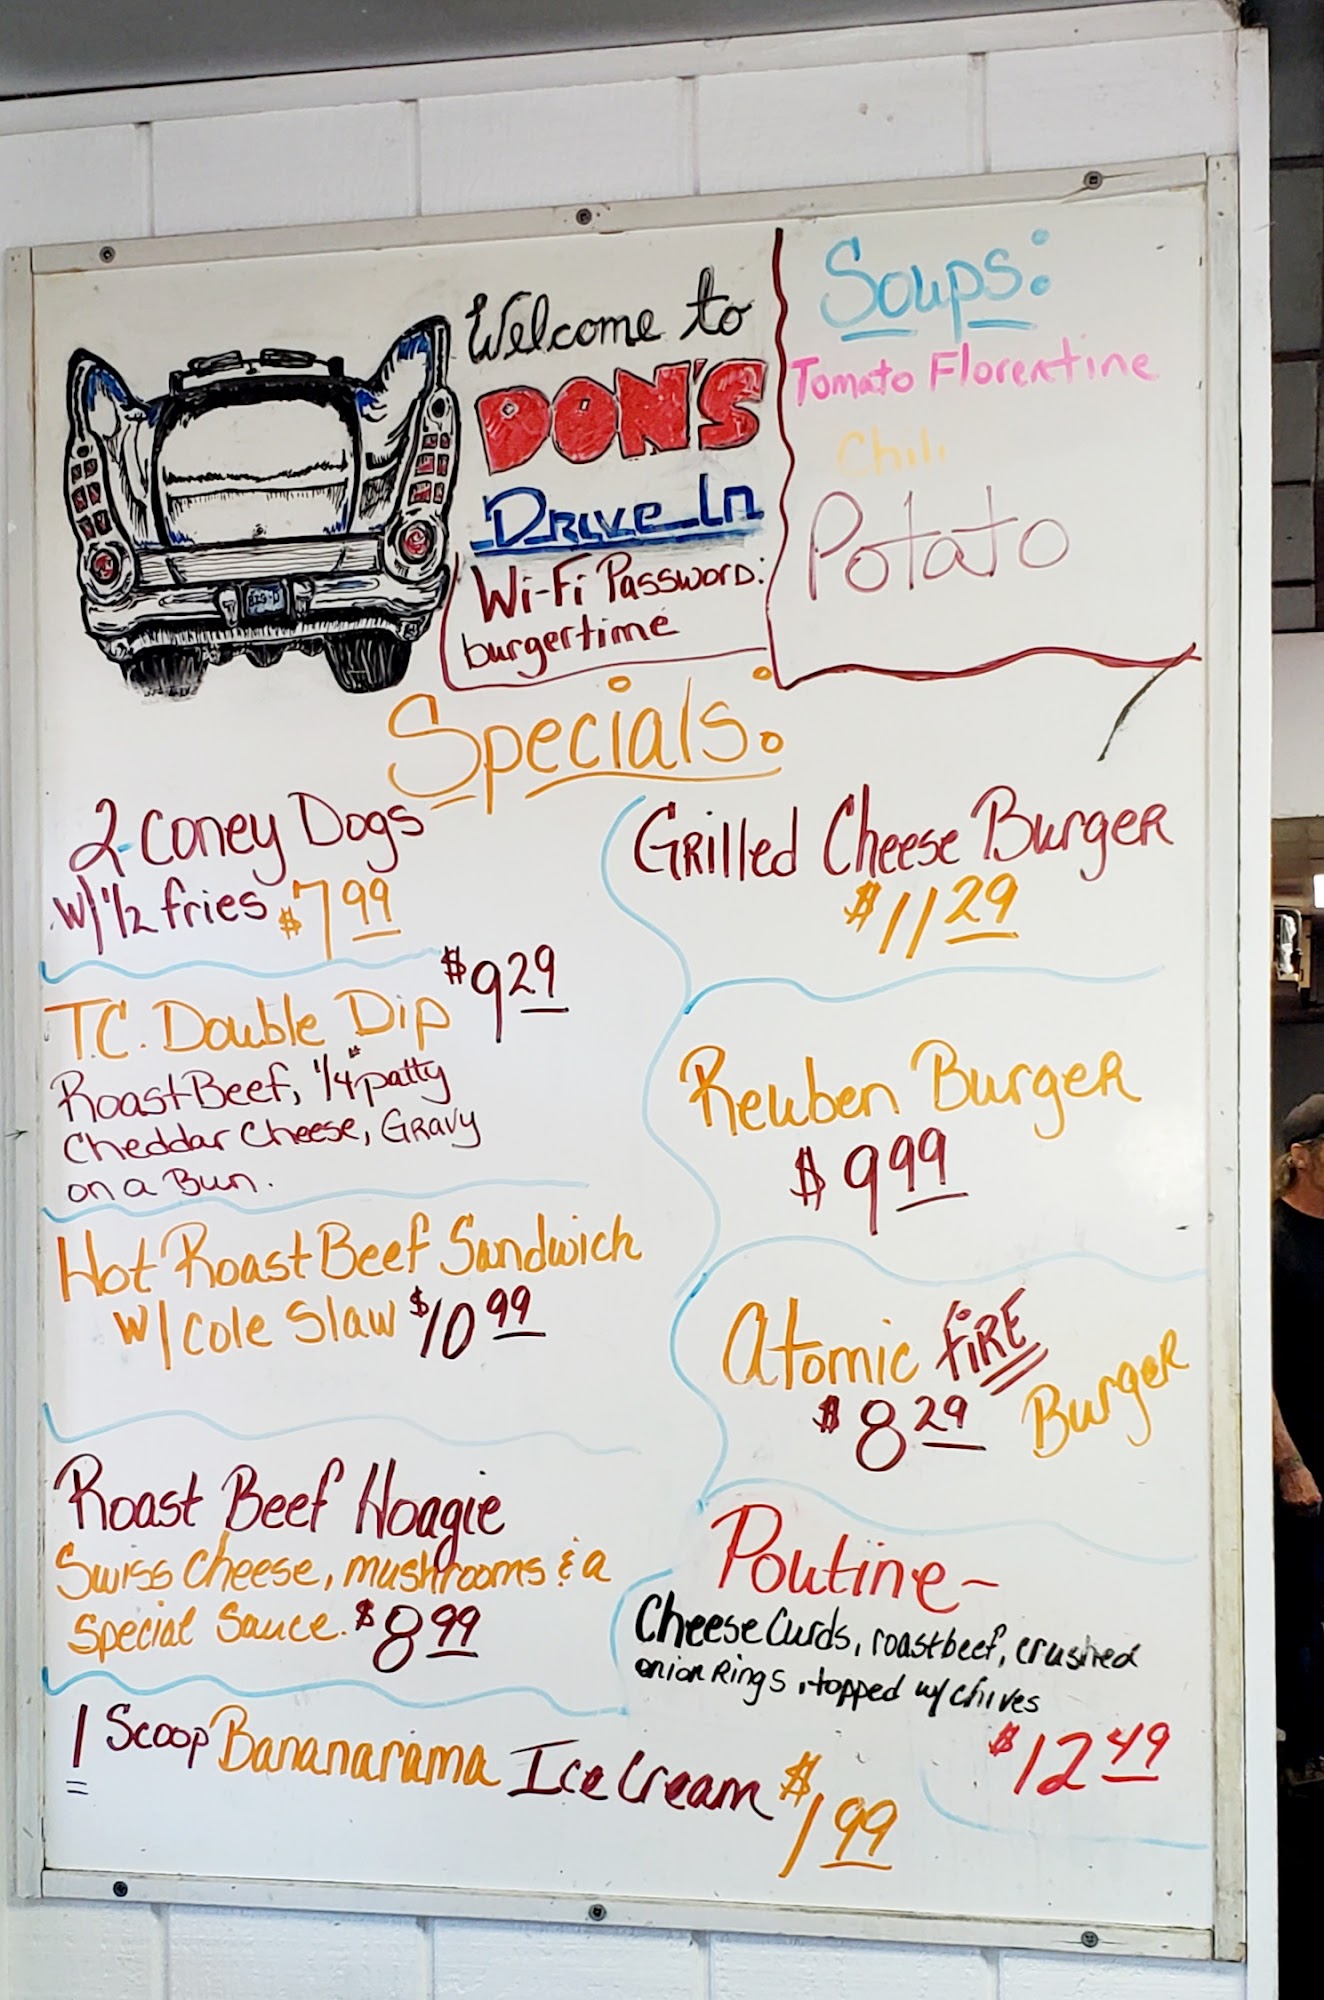 Welcome to
DON'S
Drive-In
Wi-Fi Password:
burgertime
Soups:
Tomato Florentine
Chili
Potato
Specials:
2-Coney Dogs
w/ 1/2 fries $7.99
T.C. Double Dip $9.29
Roast Beef, 1/4# patty
Cheddar Cheese, Gravy
on a Bun.
Hot Roast Beef Sandwich
w/ Cole Slaw $10.99
Roast Beef Hoagie
Swiss Cheese, mushrooms & a
Special Sauce. $8.99
1 Scoop Bananarama Ice Cream $1.99
Grilled Cheese Burger
$11.29
Reuben Burger
$9.99
Atomic FIRE
Burger
$8.29
Poutine ~
Cheese Curds, roast beef, crushed
onion Rings, topped w/ chives
$12.49